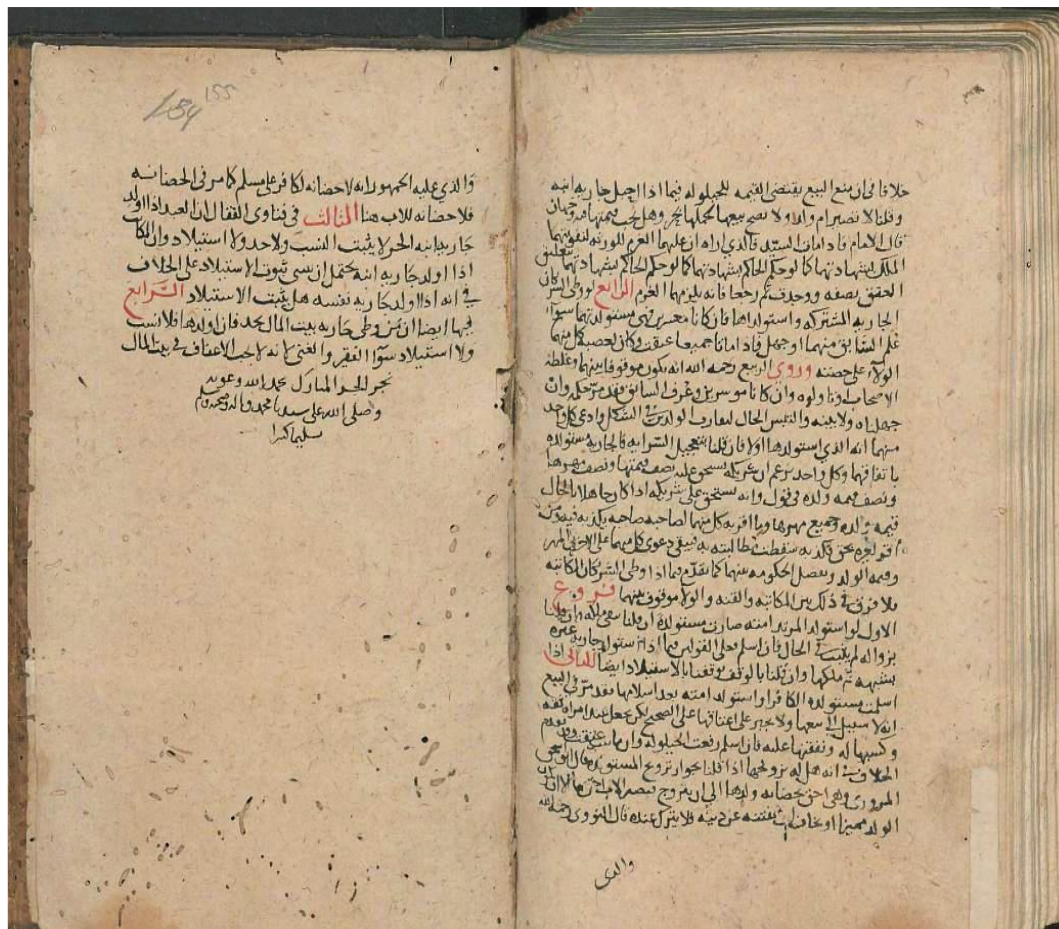 خلافا في ان منع البيع يقتضى القيمه للحيلوله فيما اذا احبل جاريه ابنه
وقلنا لا تصير ام ولد ولا تصح بيعها لحملها بحر وهل يجب قيمتها فيه وجهان
قال الامام فاذا مات السيد فالذي اراه ان عليهما الغرم للورثه لتفويتهما
الملك بشهادتهما كما لو حكم الحاكم بشهادتهما كما لو حكم الحاكم بشهادتهما بتعليق
العتق بصفه ووجدت ثم رجعا فانه يلزمهما الغرم الرابع لو وطى الشريكان
الجاريه المشتركه واستولداها فان كانا معسرين فهى مستولدتهما سوا
علم السابق منهما او جهل فاذا ماتا جميعا عتقت وكان لعصبة كل منهما
الولا على حصته وروى الربيع رحمه الله انه يكون موقوفا بينهما وغلطه
الاصحاب او تاولوه وان كانا موسرين وعرف السابق فقد مر حكمه وان
جهلناه ولا بينه والتبس الحال لتقارب الولدين فى الشكل وادعى كل واحد
منهما انه الذي استولدها اولا فان قلنا بتعجيل السرايه فالجاريه مستولده
باتفاقهما وكل واحد يزعم ان شريكه يستحق عليه نصف قيمتها ونصف مهرها
ونصف قيمه ولده فى قول وانه يستحق على شريكه اذا كان جاهلا بالحال
قيمه ولده وجميع مهرها وما اقر به كل منهما لصاحبه صاحبه يكذبه فيه ومن
اقر لغيره بحق فكذبه سقطت مطالبته به فيبقى دعوى كل منهما على الاخر بالمهر
وقيمه الولد وتفصل الحكومه بينهما كما تقدم فيما اذا وطى الشريكان المكاتبه
ولا فرق فى ذلك بين المكاتبه والقنه والولا موقوف بينهما فروع
الاول لو استولد المرتد امته صارت مستولدة ان قلنا ببقى ملكه وان قلنا
بزواله لم يثبت فى الحال فان اسلم فعلى القولين فيما اذا استولد جاريه غيره
بشبهه ثم ملكها وان قلنا بالوقف توقفنا بالاستيلاد ايضا الثانى اذا
اسلمت مستولده الكافر او استولد امته بعد اسلامها فقد مر فى البيع
انه لا سبيل الى بيعها ولا يجبر على اعتاقها على الصحيح لكن تجعل عند امراه ثقه
وكسبها له ونفقتها عليه فان اسلم رفعت الحيلوله وان مات عتقت وتقدم
الخلاف فى انه هل له تزويجها اذا قلنا بجواز تزويج المستولده قال ابو اسحق
المروزى وهى احق بحضانه ولدها الى ان تتزوج فيصير الاب احق بها الا ان كان
الولد مميزا او يخاف ان يفتنه عن دينه فلا يترك عنده قال النووى رحمه الله
والذى
155
والذي عليه الجمهور انه لا حضانه لكافر على مسلم كما مر فى الحضانه
فلا حضانه للاب هنا الثالث فى فتاوى القفال ان العبد اذا اولد
جاريه ابنه الحر لا يثبت النسب ولا حد ولا استيلاد وان المكاتب
اذا اولد جاريه ابنه يحتمل ان يبنى ثبوت الاستيلاد على الخلاف
فى انه اذا اولد جاريه نفسه هل يثبت الاستيلاد الرابع
فيها ايضا ان من وطى جاريه بيت المال يحد فان اولدها فلا نسب
ولا استيلاد سوا الفقير والغنى لانه لا يجب الاعفاف فى بيت المال
نجز الجزء المبارك بحمد الله وعونه
وصلى الله على سيدنا محمد واله وصحبه وسلم
تسليما كثيرا